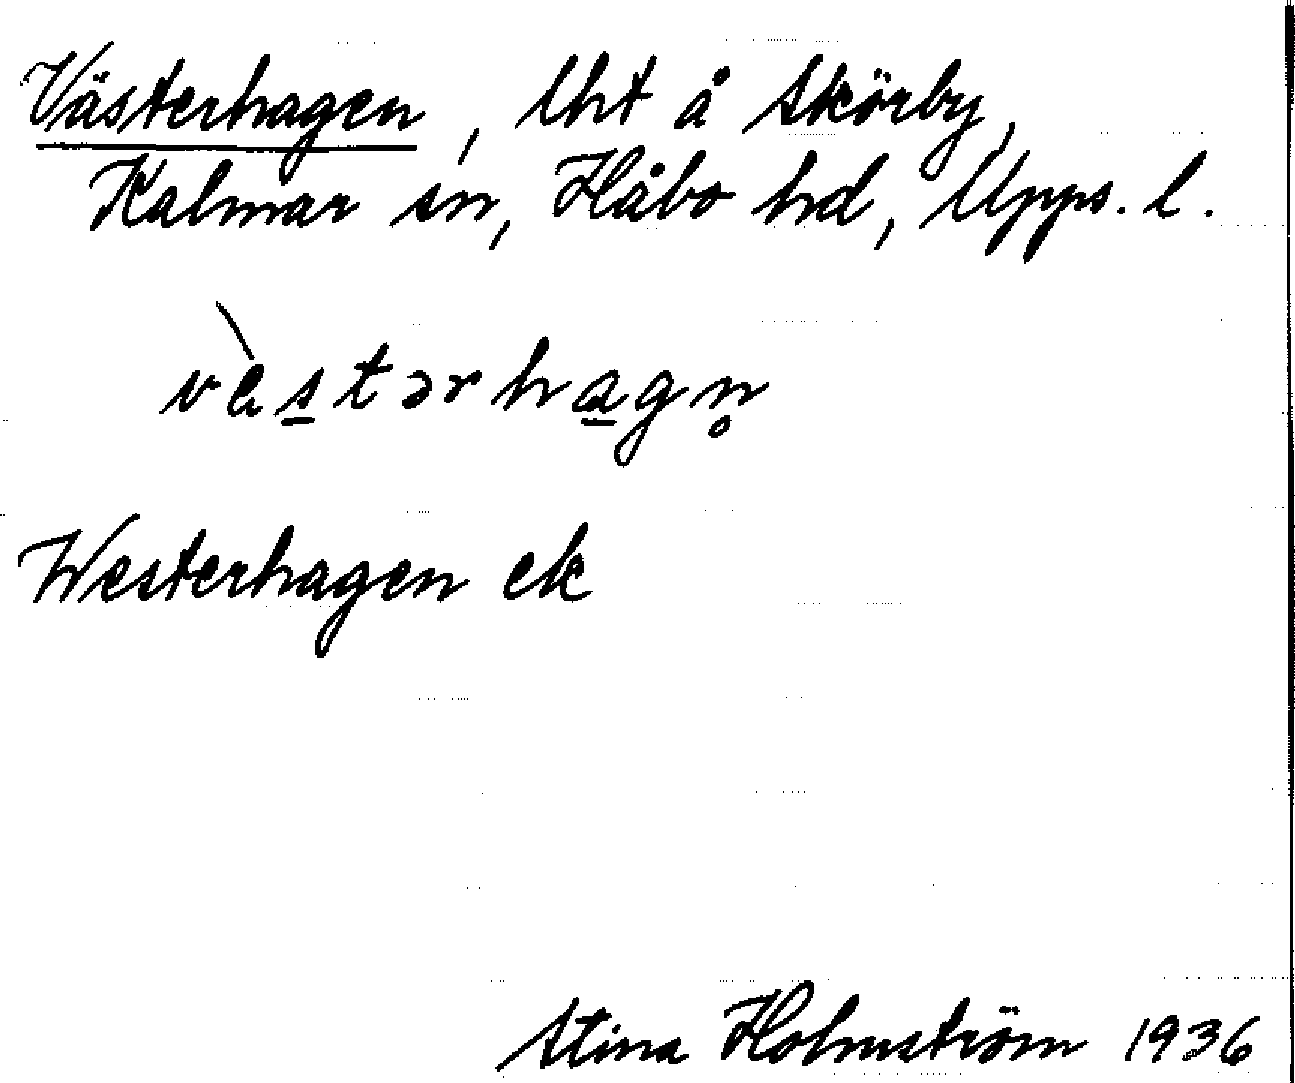 Västerhagen, lht å Skörby,
Kalmar sn, Håbo hd, Upps. l.
vè̀s̲tərha̲gn̥
Westerhagen ek
Stina Holmström 1936